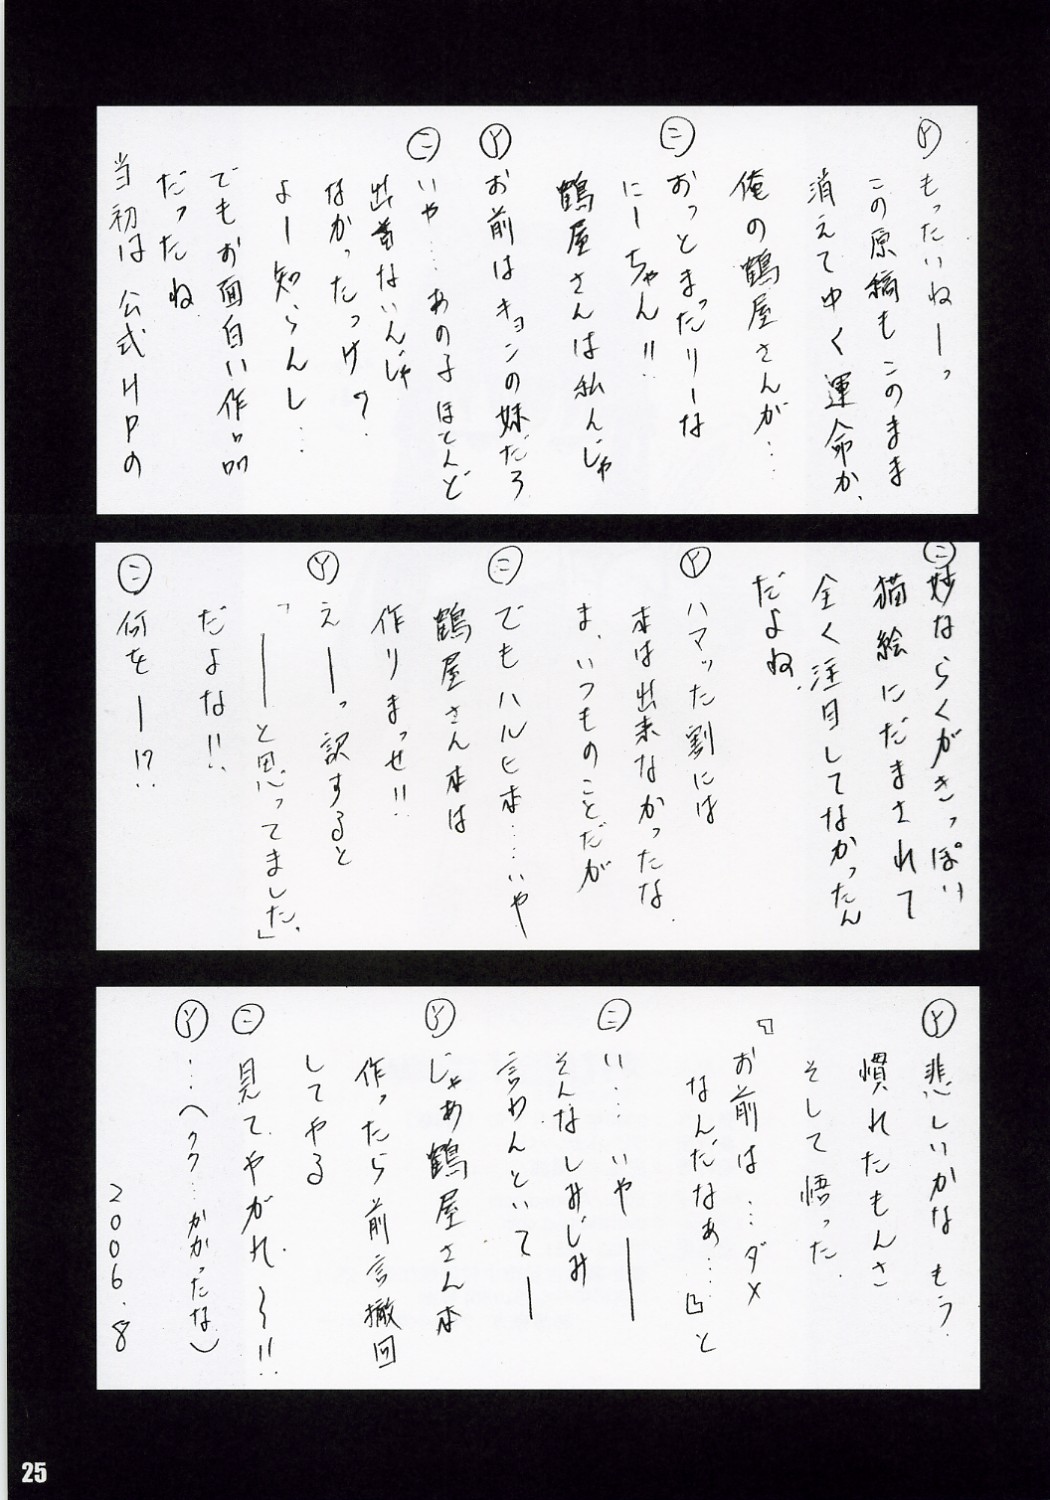 Ⓨもったいねーっ
この原稿もこのまま
消えてゆく運命か、
俺の鶴屋さんが…
㊁おっとまったりーな
にーちゃん!!
鶴屋さんは私んじゃ
Ⓨお前はキョンの妹だろ
㊁いや…あの子ほとんど
出番ないんじゃ
なかったっけ?
よー知らんし…
でもお面白い作品
だったね
当初は公式HPの
㊁妙ならくがきっぽい
猫絵にだまされて
全く注目してなかったん
だよね、
Ⓨハマッた割には
本は出来なかったな、
ま、いつものことだが
㊁でもハルヒ本……いや
鶴屋さん本は
作りまっせ!!
Ⓨえーっ訳すると
「――と思ってました。」
だよな!!
㊁何をー!?
Ⓨ悲しいかなもう
慣れたもんさ
そして悟った、
『お前は…ダメ
なんだなぁ…』と
㊁い…いや――
そんなしみじみ
言わんといてー
Ⓨじゃあ鶴屋さん本
作ったら前言撤回
してやる
㊁見てやがれ～!!
Ⓨ…(ククク…かかったな)
2006.8
25